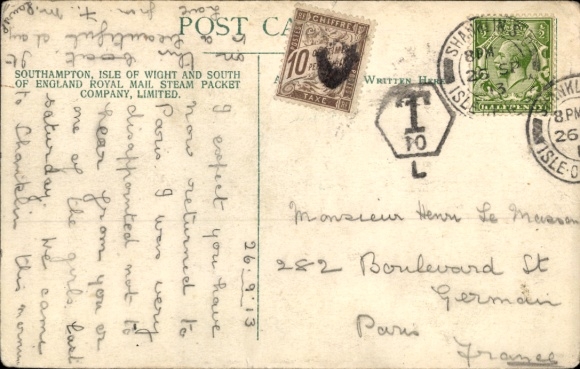 POST CA
SOUTHAMPTON, ISLE OF WIGHT AND SOUTH
OF ENGLAND ROYAL MAIL STEAM PACKET
COMPANY, LIMITED.
A
WRITTEN HERE
10
CHIFFRE
TAXE
SHANKLIN
8 PM
26
13
ISLE
HALFPENNY
NKL
8 PM
26
ISLE·O
T
10
L
26.9.13
I expect you have
now returned to
Paris I was very
disappointed not to
hear from you or
one of the girls last
Saturday. We came
to Shanklin this morning
Monsieur Henri Le Masson
282 Boulevard St
Germain
Paris
France